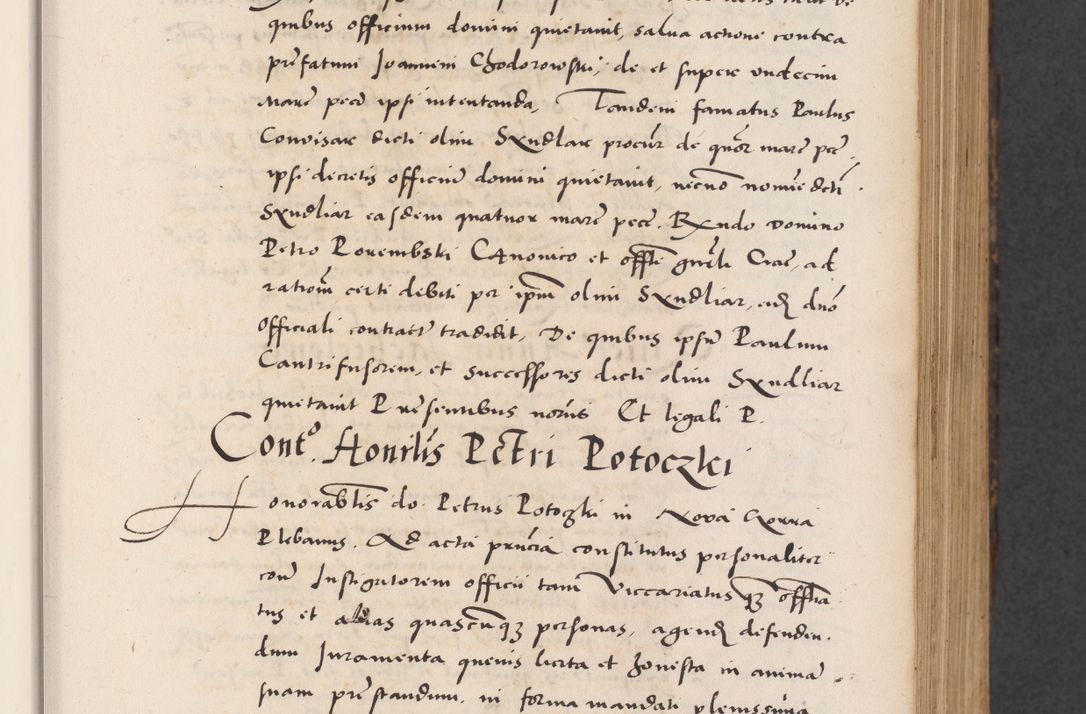 quibus officium domini quietavit, salva actione contra
prefatum Joannem Chodorowski, de et super undecim
marc̄ pec̄ ipsi intentanda, Tandem famatus Paulus
Convisar dicti olim Sxndlar procur̄ de quor̄ marc̄ pec̄.
ipsi decretis officiū domini quietavit, necnō nomīe dcti
Sxndliar easdem quatuor marc̄ pec̄. Rxndo domino
Petro Porembski Canonico et offtī gnrli Crac̄, ad
rationē certi debiti per ipm̄ olim Sxndliar, eid dnō
Officiali contractē tradidit, De quibus ipsū Paulum
Cantrifusorem, et successores dicti olim Sxndlliar
quietavit Presentibus nor̄us Et legali P.
Contᵒ. Honrlis Petri Potoczki
Honorabtlis do. Petrus Potoczki in Nova Gorra
Plebanus. Ad acta prn̄cia constitutus personaliter
corē Instigatorem officii tam Viccariatus qʒ offtīa
tus et alias quascunqʒ personas, agend defenden.
dum Juramenta quevis licita et honesta in animā
suam prestandum. in forma mandati plenissima